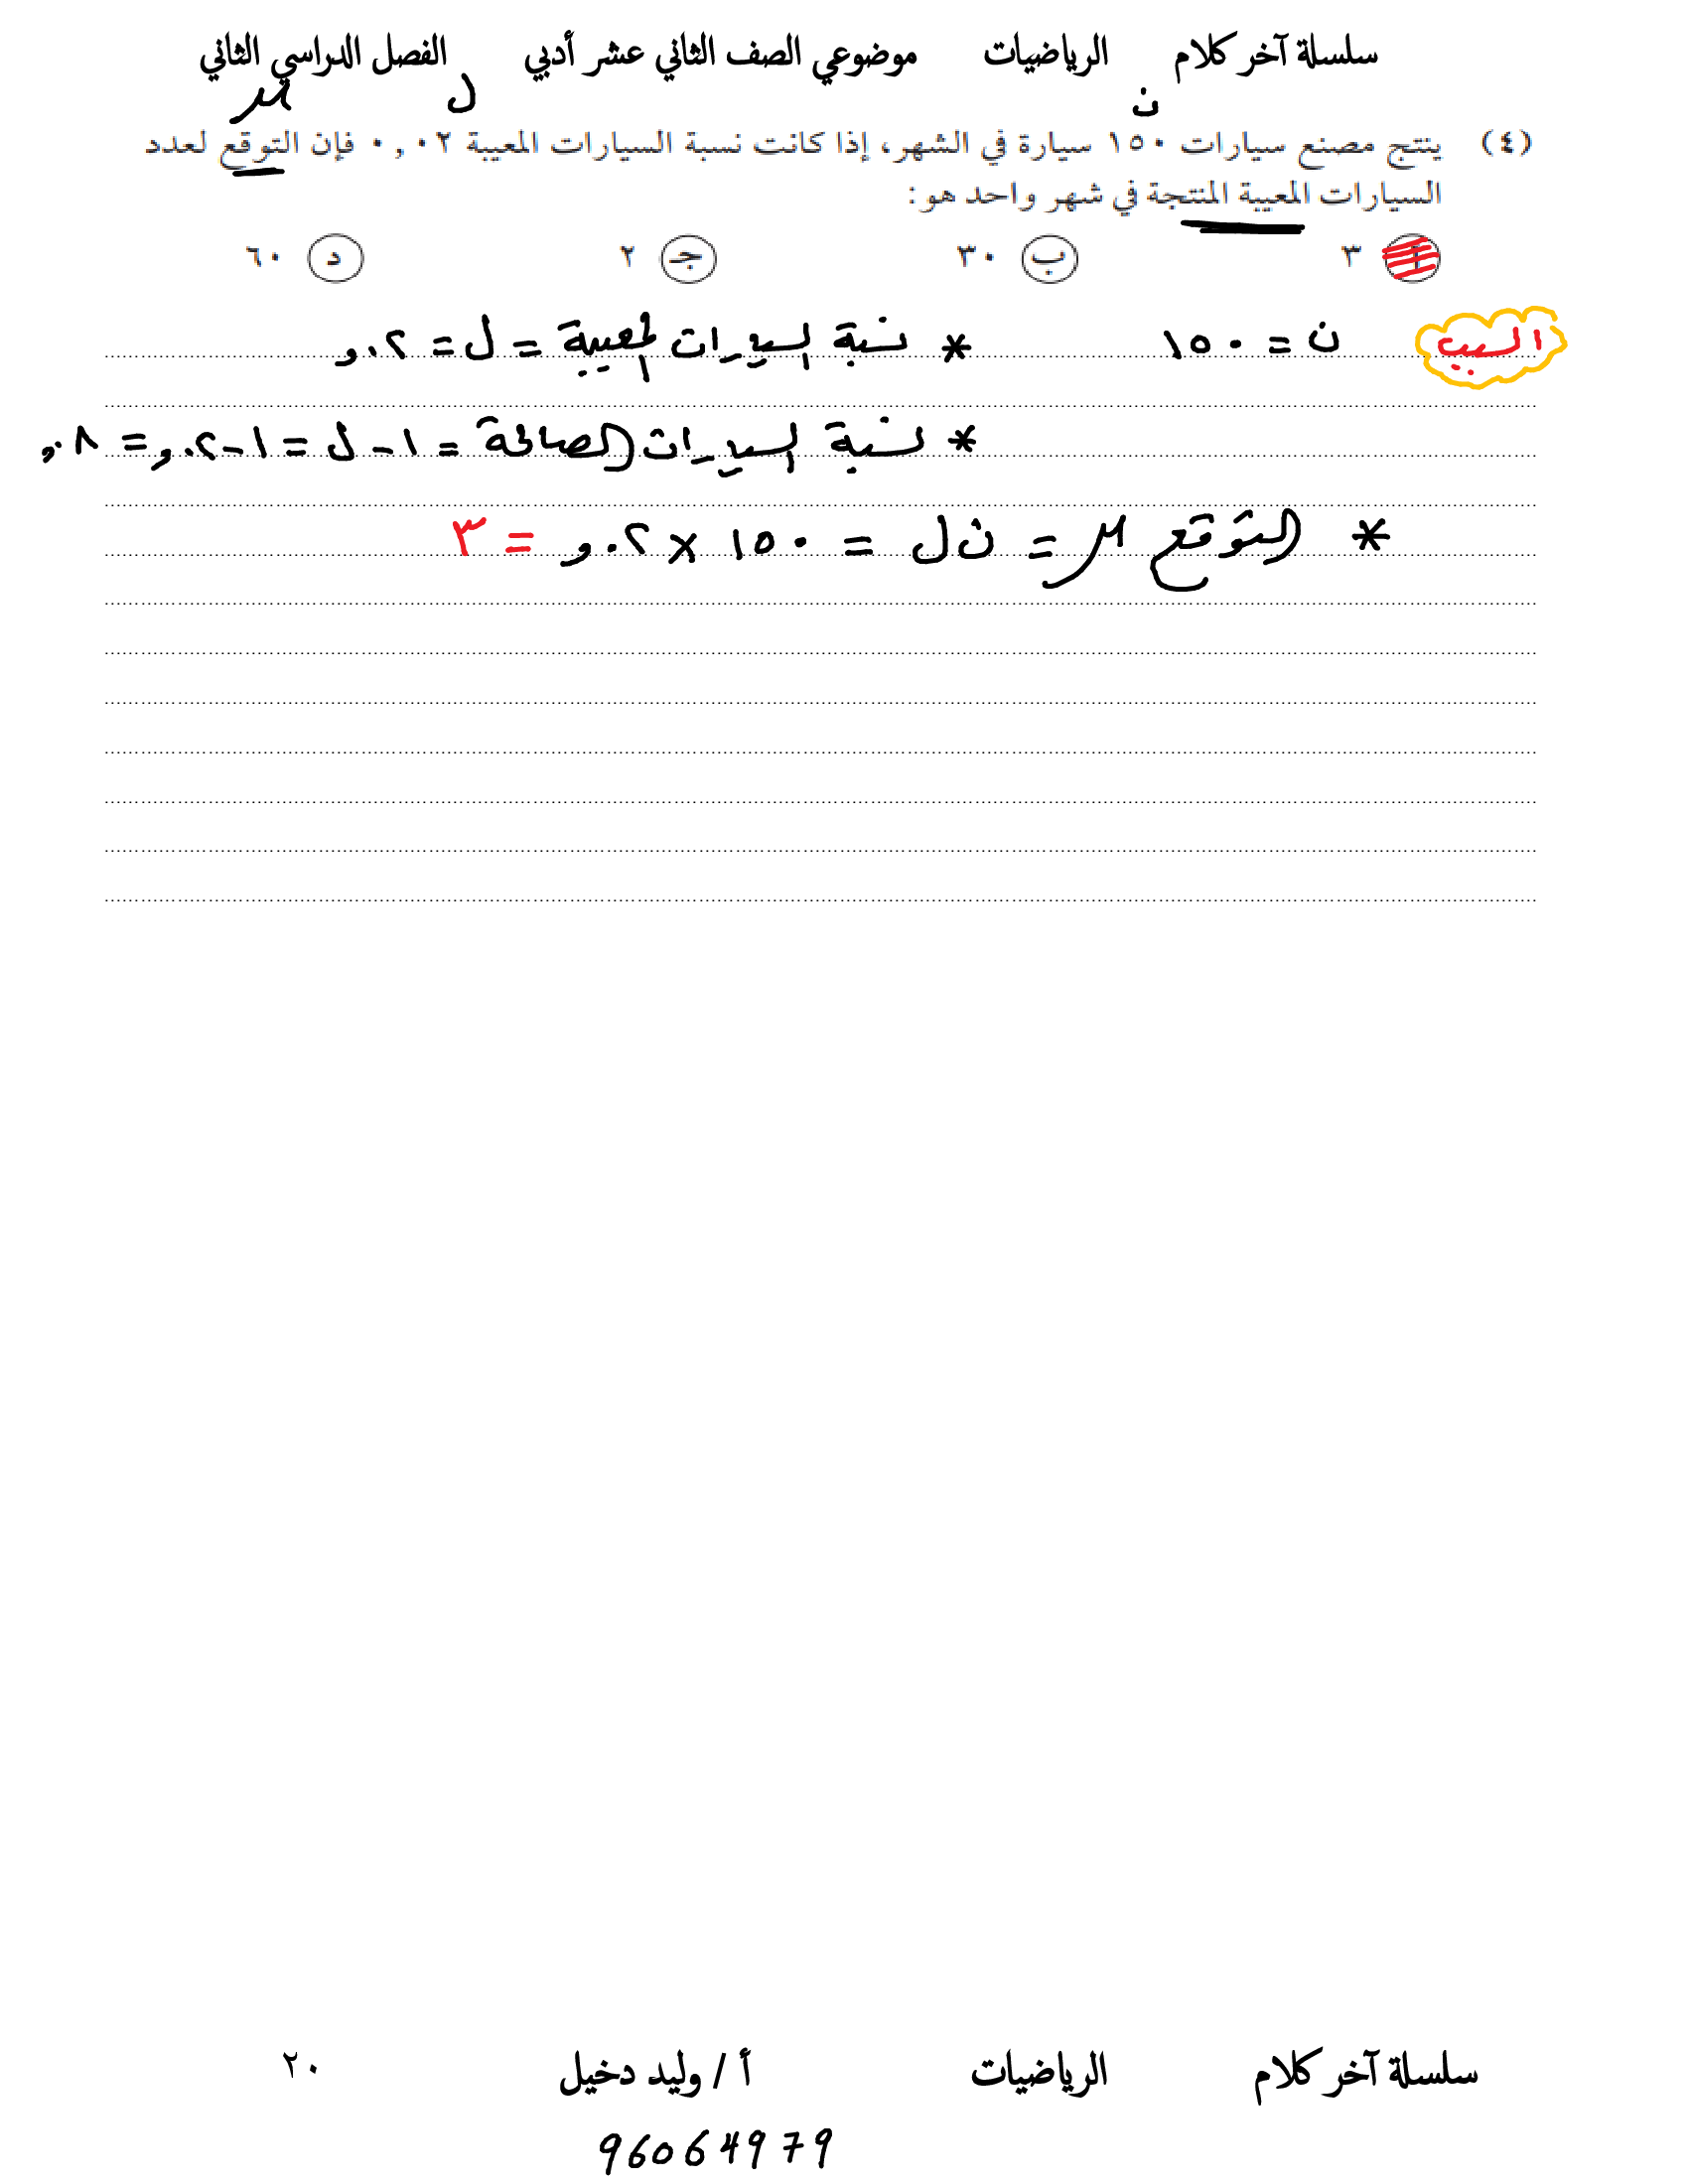 سلسلة آخر كلام الرياضيات موضوعي الصف الثاني عشر أدبي الفصل الدراسي الثاني
ن ل μ
(٤) ينتج مصنع سيارات ١٥٠ سيارة في الشهر، إذا كانت نسبة السيارات المعيبة ٠,٠٢ فإن التوقع لعدد
السيارات المعيبة المنتجة في شهر واحد هو:
أ ٣ ب ٣٠ جـ ٢ د ٦٠
السبب ن = ١٥٠ * نسبة السيارات المعيبة = ل = ٠٢,
* نسبة السيارات الصالحة = ١ - ل = ١ - ٠٢, = ٠٨,
* التوقع μ = ن ل = ١٥٠ × ٠٢, = ٣
سلسلة آخر كلام الرياضيات أ / وليد دخيل ٢٠
96064979